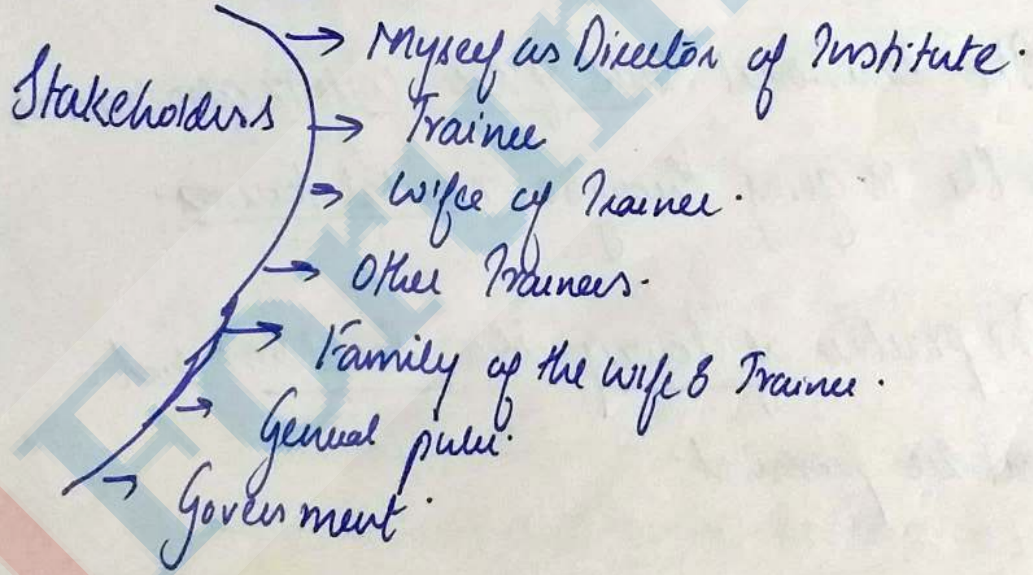 Stakeholders
→ Myself as Director of Institute.
→ Trainee
→ Wife of Trainee.
→ Other Trainees.
→ Family of the wife & Trainee.
→ General
→ Government
Forum